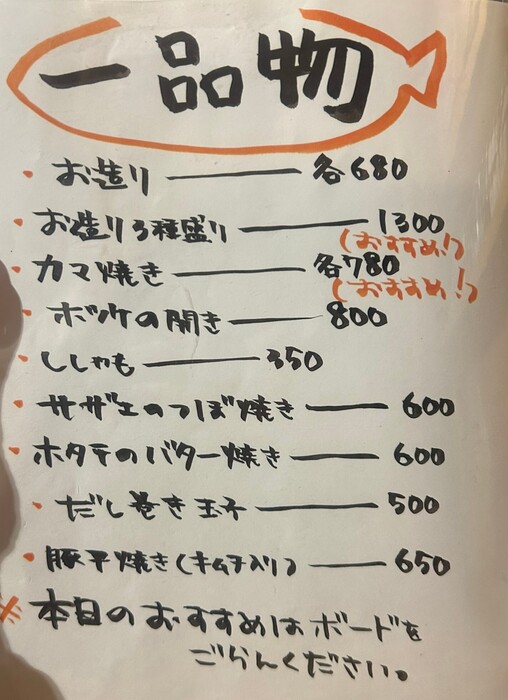 一品物
・お造り ――― 各680
・お造り3種盛り ――― 1300
(おすすめ!)
・カマ焼き ――― 各780
(おすすめ!)
・ホッケの開き ―― 800
・ししゃも ――― 350
・サザエのつぼ焼き ―― 600
・ホタテのバター焼き ―― 600
・だし巻き玉子 ――― 500
・豚平焼き(キムチ入り) ―― 650
※本日のおすすめはボードを
ごらんください。